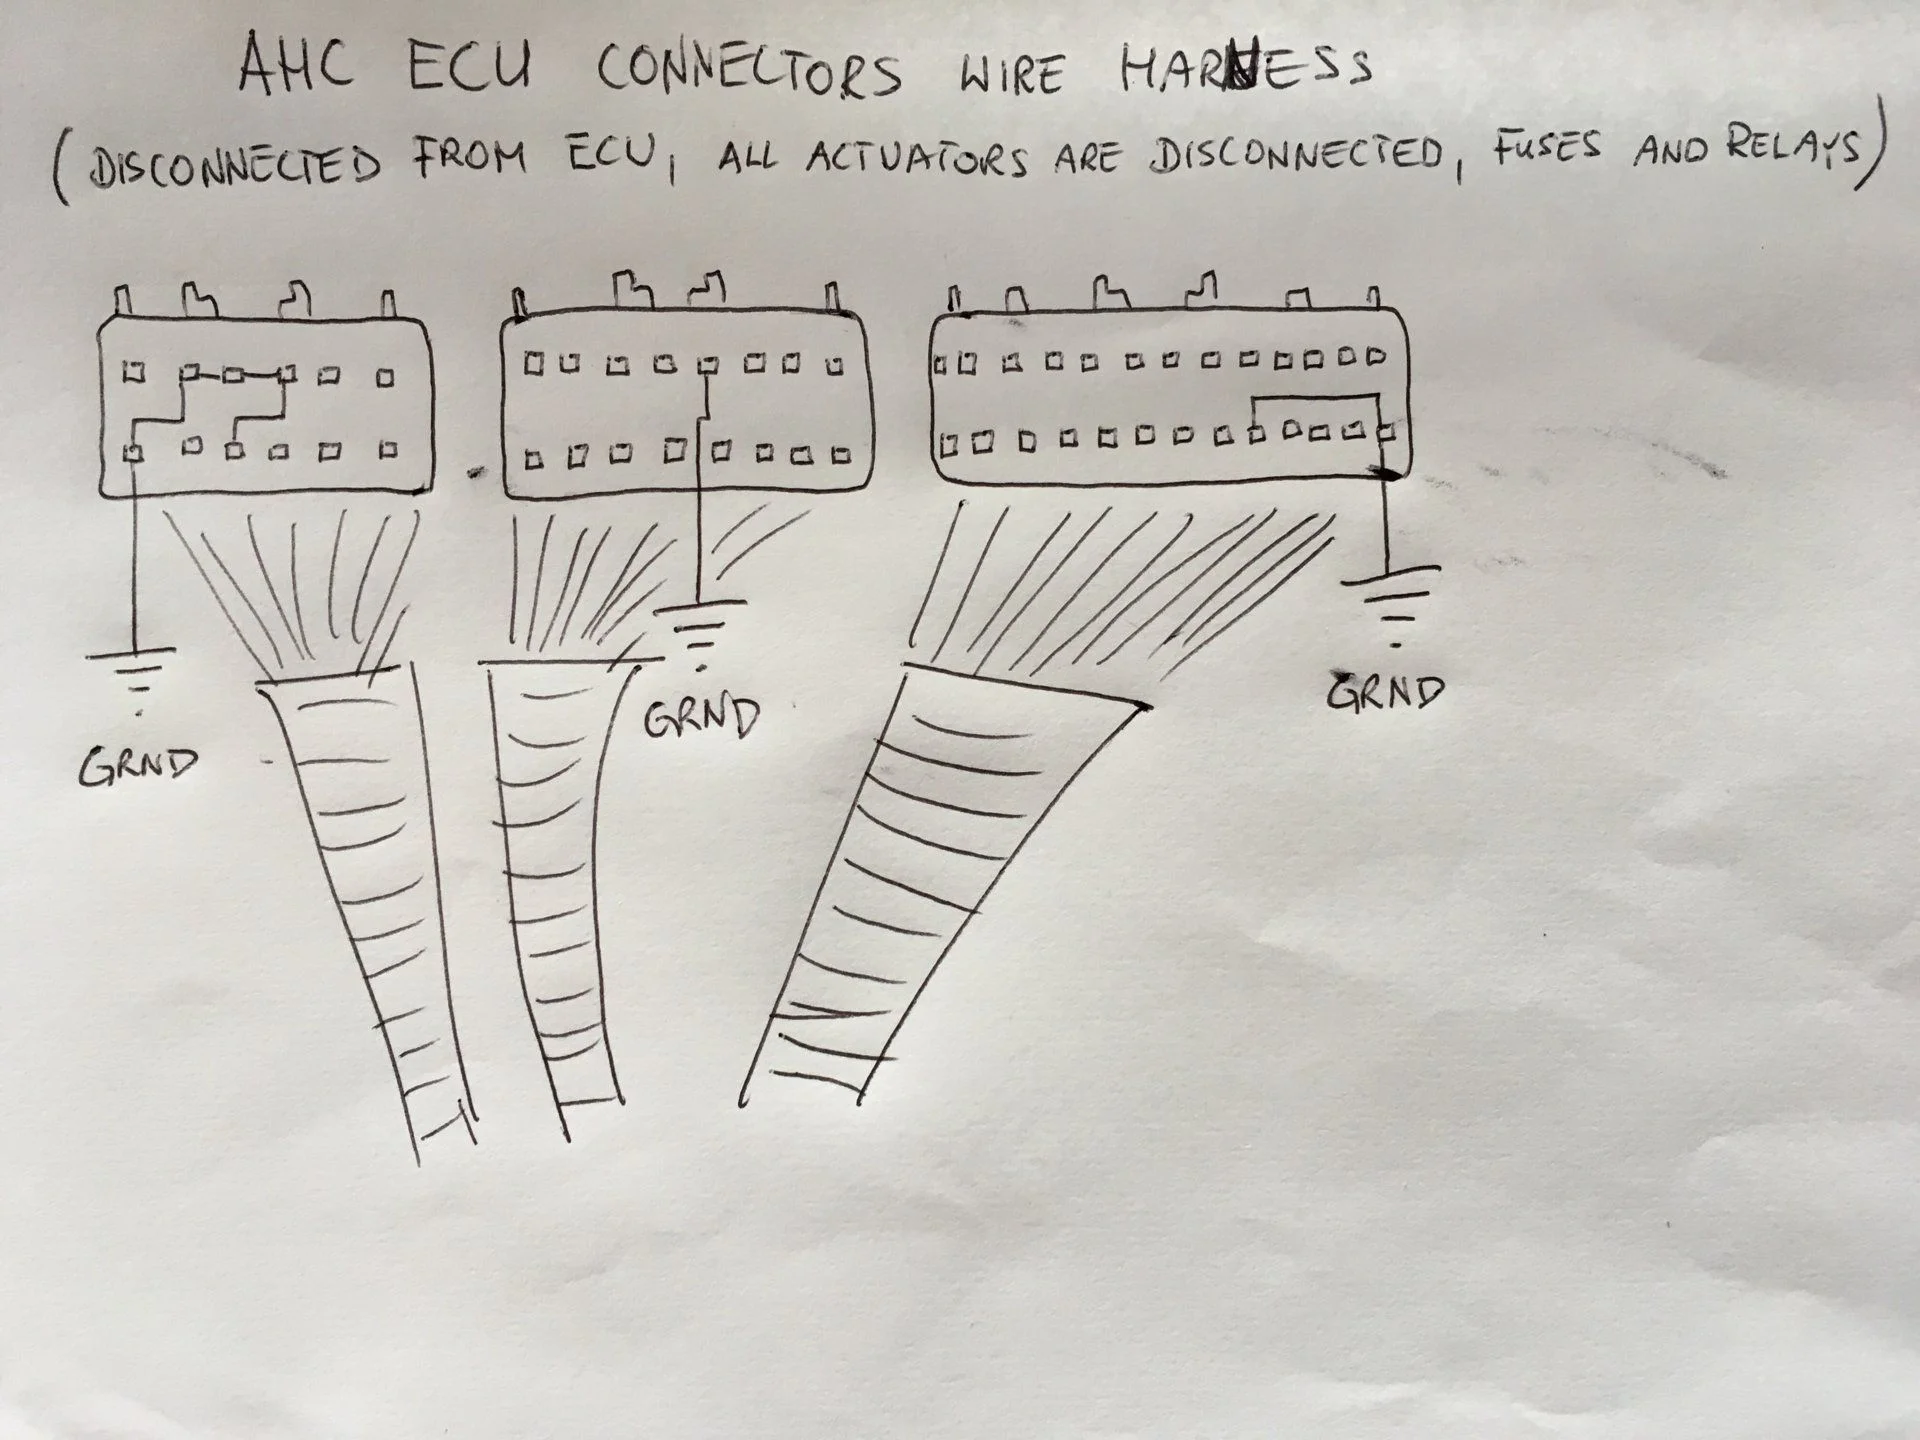 AHC ECU CONNECTORS WIRE HARNESS
(DISCONNECTED FROM ECU, ALL ACTUATORS ARE DISCONNECTED, FUSES AND RELAYS)
GRND
GRND
GRND